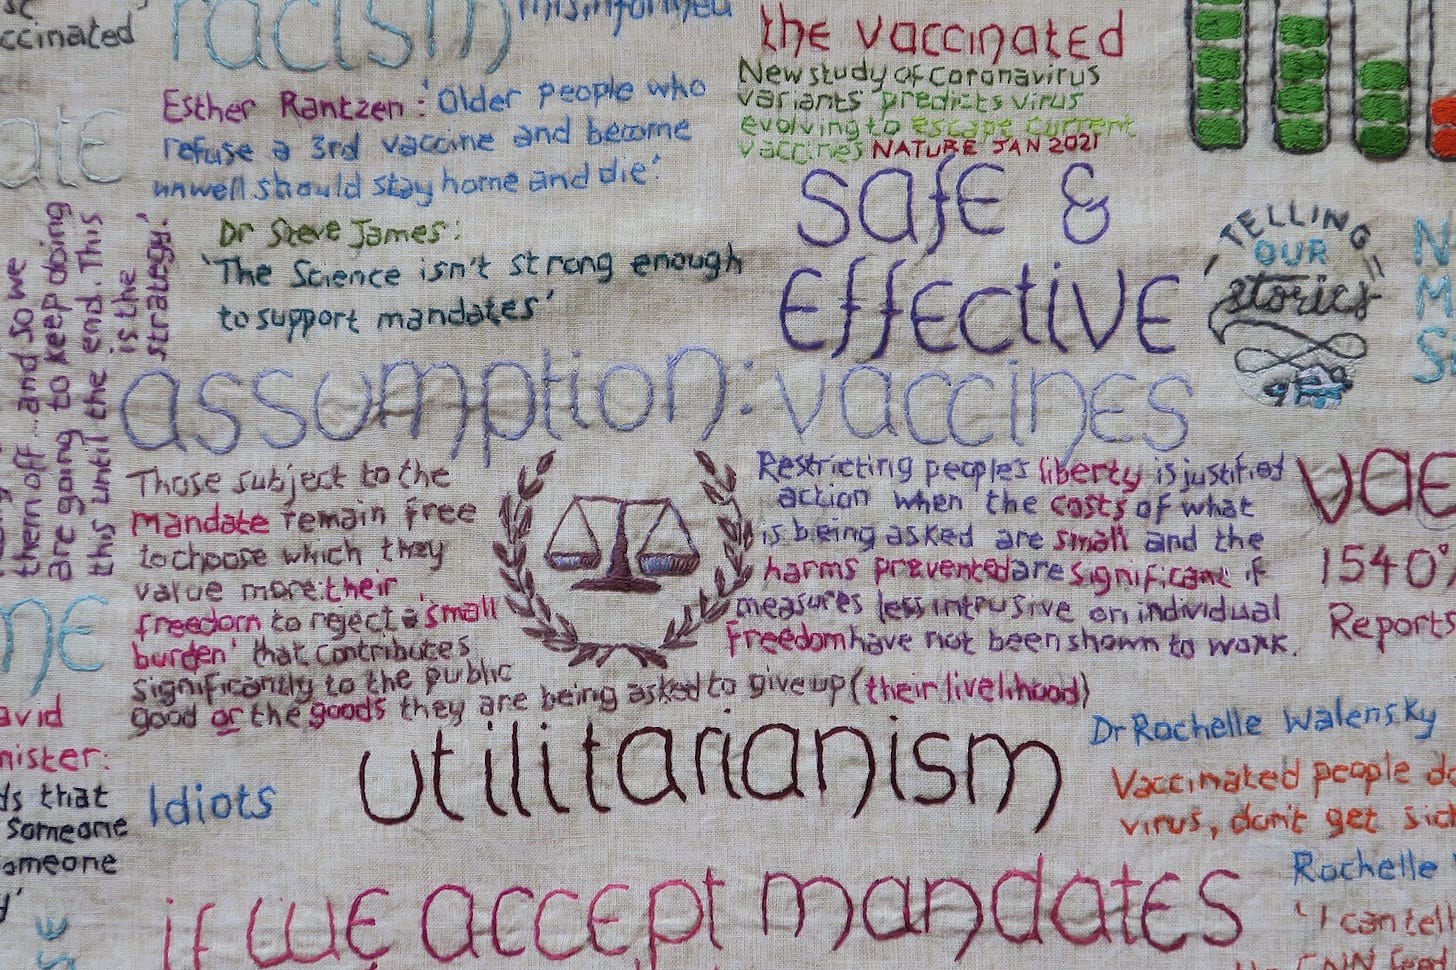 ccinated
racism
misinformed
Esther Rantzen: 'Older people who
refuse a 3rd vaccine and become
unwell should stay home and die.'
Dr Steve James:
'The Science isn't strong enough
to support mandates'
the vaccinated
New study of coronavirus
variants predicts virus
evolving to escape current
vaccines NATURE JAN 2021
safe &
effective
"TELLING
OUR
stories"
ate
them off... and so we
are going to keep doing
this until the end. This
is the
strategy.'
assumption: vaccines
Those subject to the
mandate remain free
to choose which they
value more: their
freedom to reject a 'small
burden' that contributes
significantly to the public
good or the goods they are being asked to give up (their livelihood)
Restricting people's liberty is justified
action when the costs of what
is being asked are small and the
harms prevented are significant if
measures less intrusive on individual
freedom have not been shown to work.
vae
1540
Reports
ne
avid
nister:
ds that
someone
omeone
Idiots
utilitarianism
Dr Rochelle Walensky
Vaccinated people do
virus, don't get sic
if we accept mandates
Rochelle
'I can tell
CNN feed